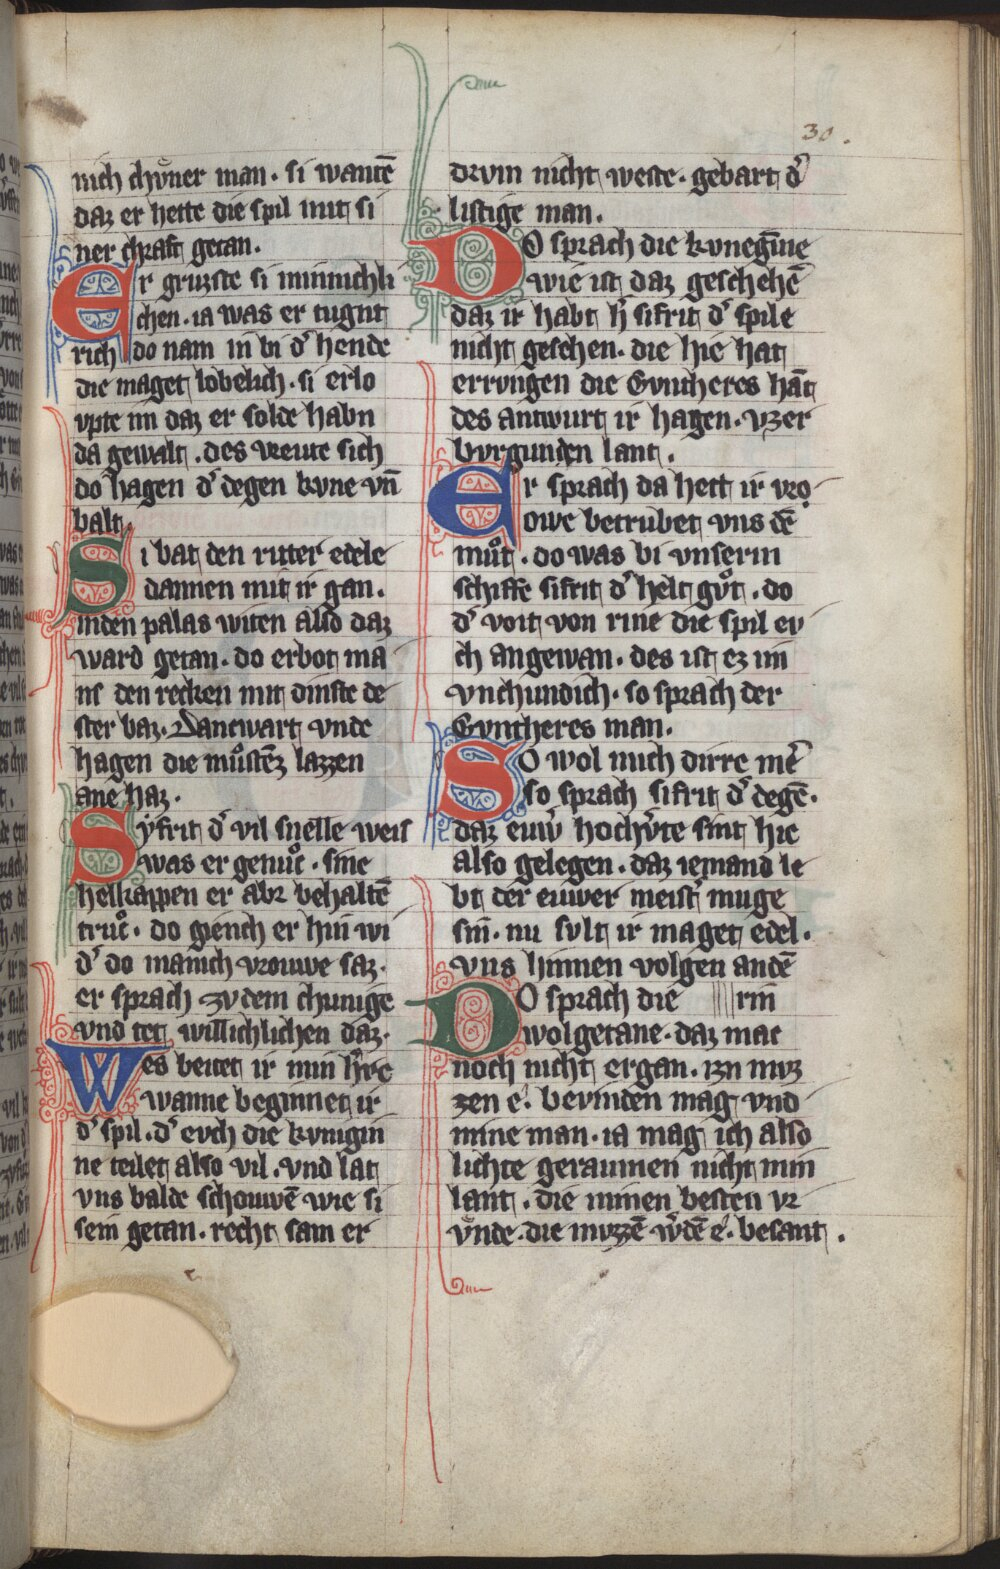 30.
nich chvͦner man. si wantē
daz er hette die spil mit si
ner chraft getan.
Er gruzste si minnichli
chen. ia was er tugnt
rich do nam in bi d͛ hende
die maget lobelich. si erlo
vpte im daz er solde habn
da gewalt. des vreute sich
do hagen d͛ degen kvne vn̄
balt.
Si bat den ritter edele
dannen mit ir gan.
inden palas witen also daz
ward getan. do erbot ma
ns den recken mit dinste de
ster baz. Dancwart vnde
hagen die mvͦstēz lazzen
ane haz.
Syfrit d͛ vil snelle weis
was er genuͦc. sine
helkappen er abr behaltē
truͦc. do giench er hin wi
d͛ do manich vrouwe saz.
er sprach zv dem chunige
vnd tet willichlichen daz.
Wes beitet ir min h͛re
wanne beginnet ir
d͛ spil. d͛ evch die kvnigin
ne teilet also vil. vnd lat
vns balde schouwē wie si
sein getan. recht sam er
drvm nicht weste. gebart d͛
listige man.
Do sprach die kvnegīne
wie ist daz geschehē
daz ir habt h͛ sifrit d͛ spile
nicht gesehen. die hie hat
errvngen die Gvntheres hāt
des antwurt ir hagen. vzer
bvrgunden lant.
Er sprach da hett ir vro
owe betrubet vns dē
muͦt. do was bi vnserm
schiffe sifrit d͛ helt gvͦt. do
d͛ voit von rine die spil ev
ch angewan. des ist ez im
vnchundich. so sprach der
Gvntheres man.
So wol mich dirre me͛
so sprach sifrit d͛ degē.
daz euw͛ hochv͛te sint hie
also gelegen. daz iemand le
bt der euwer meist͛ muge
sin. nu svlt ir maget edel.
vns hinnen volgen andē
Do sprach die rin
wolgetane. daz mac
noch nicht ergan. izn mvz
zen e. bevinden mag vnd
mine man. ia mag ich also
lichte geraumen nicht min
lant. die minen besten vr
vͤnde. die mvzzē w͛dē e. besant.